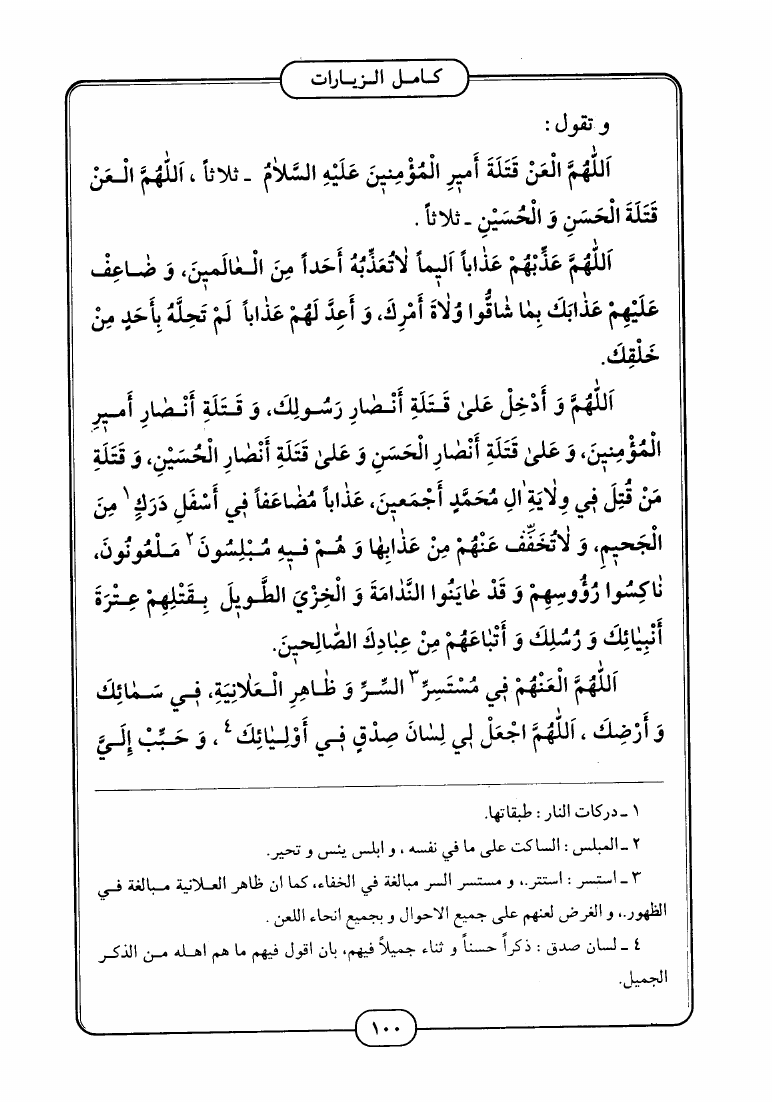 كامل الزيارات
و تقول :
اَللّٰهُمَّ الْعَنْ قَتَلَةَ أَميرِ الْمُؤْمِنينَ عَلَيْهِ السَّلاٰمُ ـ ثلاثاً ، اَللّٰهُمَّ الْعَنْ
قَتَلَةَ الْحَسَنِ وَ الْحُسَيْنِ ـ ثلاثاً .
اَللّٰهُمَّ عَذِّبْهُمْ عَذٰاباً اَليماً لاٰتُعَذِّبُهُ أَحَداً مِنَ الْعٰالَمينَ، وَ ضٰاعِفْ
عَلَيْهِمْ عَذٰابَكَ بِمٰا شٰاقُّوا وُلاٰةَ أَمْرِكَ، وَ أَعِدَّ لَهُمْ عَذٰاباً لَمْ تَحِلَّهُ بِأَحَدٍ مِنْ
خَلْقِكَ.
اَللّٰهُمَّ وَ أَدْخِلْ عَلىٰ قَتَلَةِ أَنْصٰارِ رَسُولِكَ، وَ قَتَلَةِ أَنْصٰارِ أَميرِ
الْمُؤْمِنينَ، وَ عَلىٰ قَتَلَةِ أَنْصٰارِ الْحَسَنِ وَ عَلىٰ قَتَلَةِ أَنْصٰارِ الْحُسَيْنِ، وَ قَتَلَةِ
مَنْ قُتِلَ في وِلاٰيَةِ اٰلِ مُحَمَّدٍ أَجْمَعينَ، عَذٰاباً مُضٰاعَفاً في أَسْفَلِ دَرَكٍ١ مِنَ
الْجَحيمِ، وَ لاٰتُخَفِّفْ عَنْهُمْ مِنْ عَذٰابِهٰا وَ هُمْ فيهِ مُبْلِسُونَ٢ مَلْعُونُونَ،
نٰاكِسُوا رُؤُوسِهِمْ وَ قَدْ عٰايَنُوا النَّدٰامَةَ وَ الْخِزْيَ الطَّويلَ بِقَتْلِهِمْ عِتْرَةَ
أَنْبِيٰائِكَ وَ رُسُلِكَ وَ أَتْبٰاعَهُمْ مِنْ عِبٰادِكَ الصّٰالِحينَ.
اَللّٰهُمَّ الْعَنْهُمْ في مُسْتَسِرِّ٣ السِّرِّ وَ ظٰاهِرِ الْعَلاٰنِيَةِ، في سَمٰائِكَ
وَ أَرْضِكَ ، اَللّٰهُمَّ اجْعَلْ لي لِسٰانَ صِدْقٍ في أَوْلِيٰائِكَ٤ ، وَ حَبِّبْ إِلَيَّ
١ ـ دركات النار : طبقاتها.
٢ ـ المبلس : الساكت على ما في نفسه ، و ابلس يئس و تحير.
٣ ـ استسر : استتر.، و مستسر السر مبالغة في الخفاء، كما ان ظاهر العلانية مبالغة في
الظهور.، و الغرض لعنهم على جميع الاحوال و بجميع انحاء اللعن .
٤ ـ لسان صدق : ذكراً حسناً و ثناء جميلاً فيهم، بان اقول فيهم ما هم اهله من الذكر
الجميل.
١٠٠